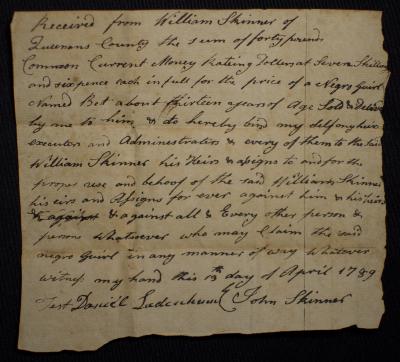 Received from William Skinner of
Queenans County the sum of forty pounds
Common Current Money Rating Dollars at Seven Shillings
and sixpence each in full for the price of a Negro Guirl
Named Bet about thirteen years of Age Sold &
by me to him & do hereby bind my self my heirs
executors and Administrators & every of them to the said
William Skinner his Heirs & assigns to and for the
proper use and behoof of the said William Skinner
his eirs and Assigns for ever against him & his heirs
& against & against all & Every other person &
persons Whatsoever who may Claim the said
negro Guirl in any manner of way Whatever
witness my hand this 13th day of April 1789
Test Daniel John Skinner